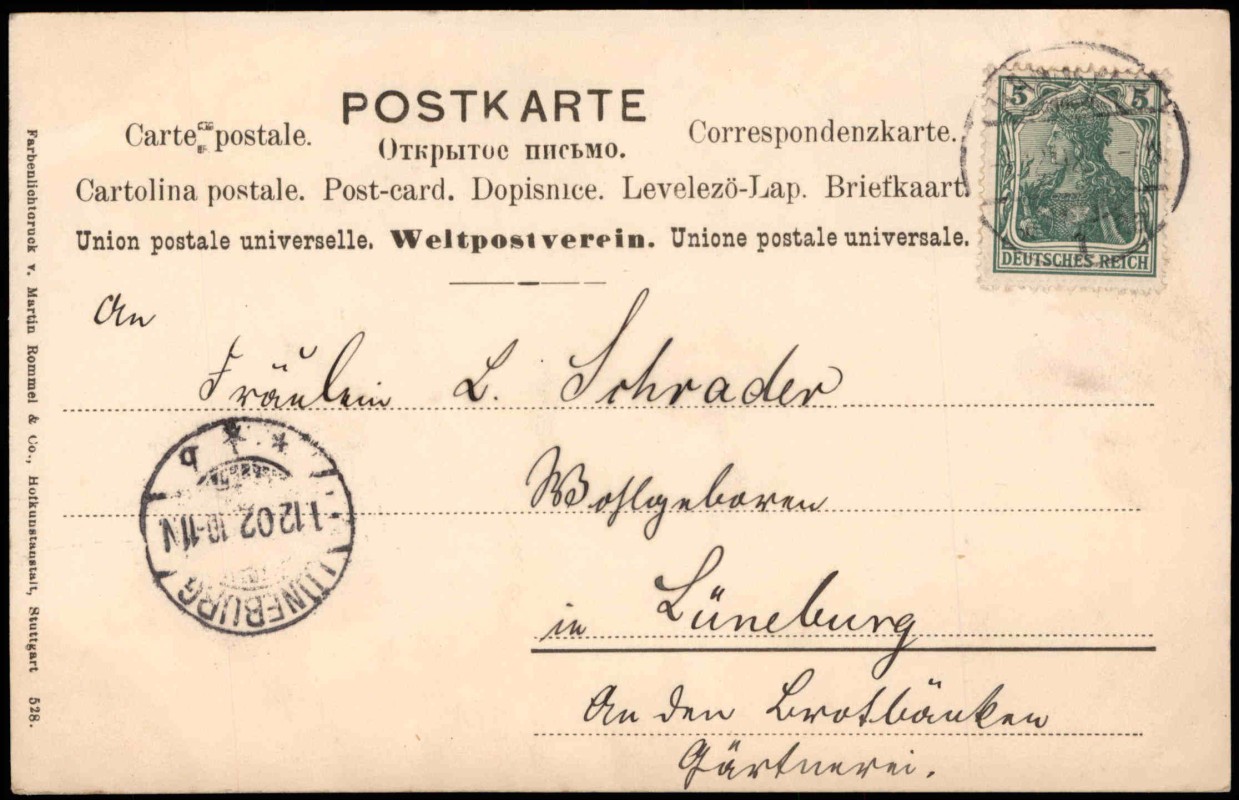 POSTKARTE
Carte postale.
Открытое письмо.
Correspondenzkarte.
Cartolina postale. Post-card. Dopisnice. Levelezö-Lap. Briefkaart.
Union postale universelle. Weltpostverein. Unione postale universale.
5 5
DEUTSCHES REICH
An
Fräulein L. Schrader
Wohlgeboren
in Lüneburg
An den Brotbänken
Gärtnerei.
LÜNEBURG
1.12.02.10-11N
b
Farbenlichtdruck v. Martin Rommel & Co., Hofkunstanstalt, Stuttgart 528.